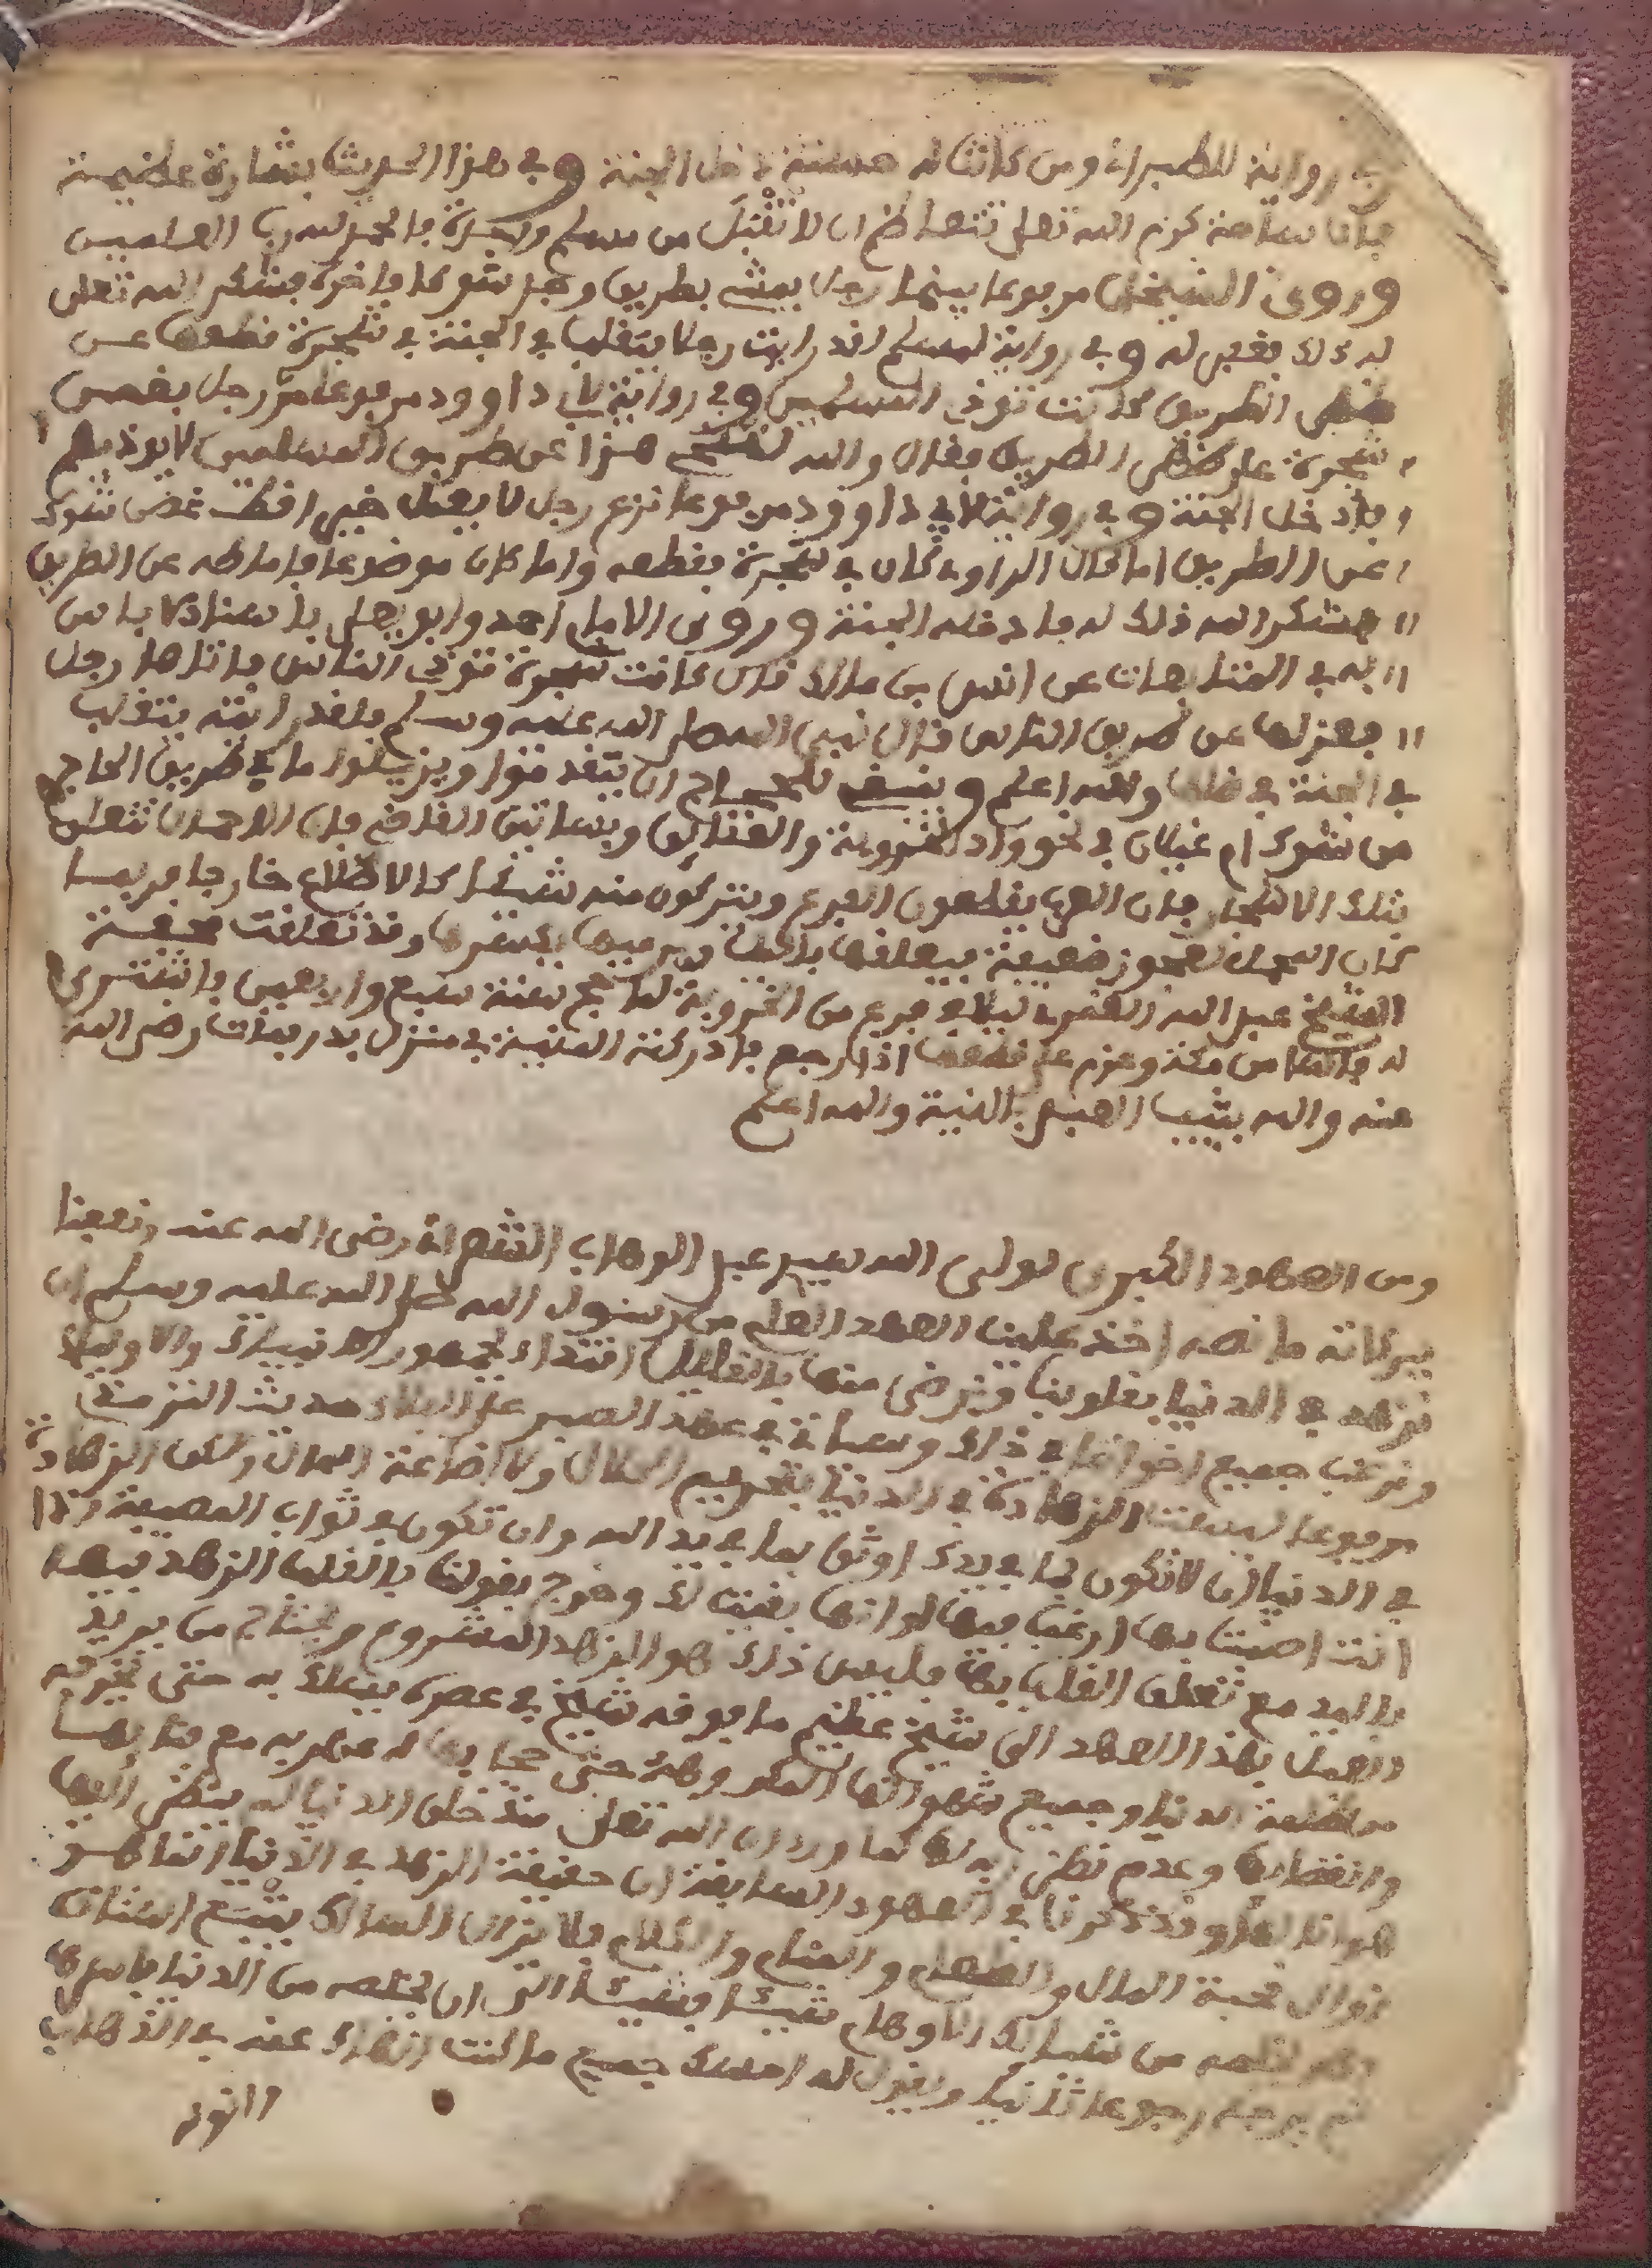 وفي رواية للطبراني ومن كانت له حسنة دخل الجنة وفي هذا الحديث بشارة عظيمة
فإن ساحة كرم الله تعلى تتعاظم ان لا تقبل من مسلم والحمد لله رب العلمين
وروى الشيخان مرفوعا بينما رجل يمشي بطريق وجد شوكا فاخره فشكر الله تعلى
له ذلك فغفر له وفي رواية لمسلم لقد رايت رجلا يتقلب في الجنة في شجرة قطعها عن
ظهر الطريق كانت توذي المسلمين وفي رواية لابي داوود مرفوعا مر رجل بغصن
شجرة على ظهر الطريق فقال والله لانحين هذا عن طريق المسلمين لا يوذيهم
فادخل الجنة وفي رواية لابي داوود مرفوعا نزع رجل لا يعمل خيرا قط غصن شوك
عن الطريق اما قال الراوي كان في شجرة فقطعه واما كان موضوعا فاماطه عن الطريق
فشكر الله ذلك له فادخله الجنة وروى الامام احمد وابو يعلى باسناد لا باس
به في المتابعات عن انس بن مالك قال كانت شجرة توذي الناس فاتاها رجل
فعزلها عن طريق الناس قال نبي الله صلى الله عليه وسلم فلقد رايته يتقلب
في الجنة في ظلها والله اعلم وينبغي للحجاج ان يتقدموا ويزيلوا ما في طريق الحاج
من شوك ام غيلان في نحو واد الخروبة والمضايق وبساتين القاضي فإن الاحمال تتعلق
بتلك الاشجار فإن العرب يقطعون الفرع ويتركون منه شيئا كالاضلاع خارجا فربما
كان الجمل لعجوز ضعيفة فيعلقها باكتافها ويرميها يكسرها وقد تعلقت محفة
الشيخ عبد الله العمري ليلا في فرع من الخروبة لما حج سنة سبع واربعين فاشترى
له فاسا من مكة وعزم على قطعها اذا رجع فادركته المنية في منزل بدر فمات رضي الله
عنه والله يثيب العبد بالنية والله اعلم
ومن العهود الكبرى لولي الله سيدي عبد الوهاب الشعراني رضي الله عنه ونفعنا
ببركاته ما نصه اخذ علينا العهد العام من رسول الله صلى الله عليه وسلم ان
نزهد في الدنيا بقلوبنا ونرضى منها بالقليل اقتداء بجمهور الانبياء والاولياء
ونرغب جميع اخواننا في ذلك وسياتي في عهد الصبر على البلاء حديث الترمذي
مرفوعا ليست الزهادة في الدنيا بتحريم الحلال ولا اضاعة المال ولكن الزهادة
في الدنيا ان لا تكون بما في يدك اوثق بما في يد الله وان تكون في ثواب المصيبة اذا
انت اصبت بها ارغب فيها لو انها بقيت لك وخرج بقولنا بالقلب الزهد فيها
باليد مع تعلق القلب بها فليس ذلك هو الزهد المشروع ويحتاج من يريد
العمل بهذا العهد الى شيخ عظيم ما فوقه شيخ في عصره يسلك به حتى يخرجه
من ظلمة الدنيا وجميع شهواتها المكروهة حتى عن محابها له عند ربه مع فنائها
وانقضائها وعدم نظر ربه لها كما ورد ان الله تعلى منذ خلق الدنيا لم ينظر اليها
هوانا لها وقد ذكرنا في العهود السابقة ان حقيقة الزهد في الدنيا انما هو
زوال محبة المال والطعام والمنام والكلام فلا يزال السالك يتبع استاذه
وهو يخلصه من شباك الاوهام شيئا فشيئا الى ان يخلصه من الدنيا باسرها
ثم يرجه رجوعا ثانيا ويقول له امسك جميع ما كنت انهاك عنه في الذهاب